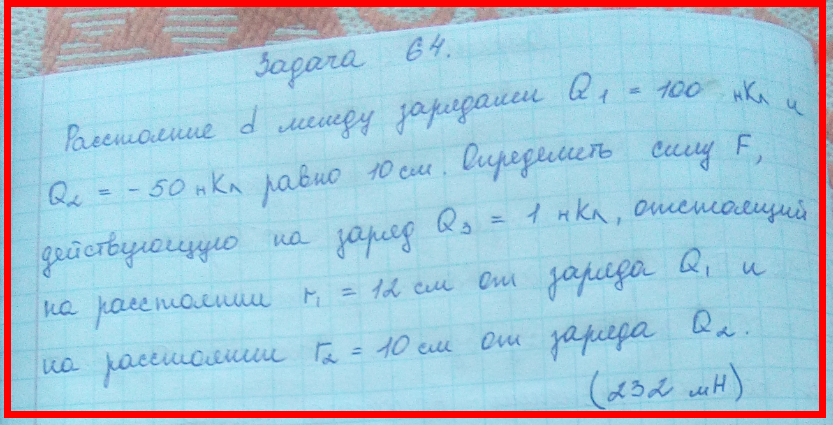 Задача 64.
Расстояние d между зарядами Q1 = 100 нКл и
Q2 = - 50 нКл равно 10 см. Определить силу F,
действующую на заряд Q3 = 1 нКл, отстоящий
на расстоянии r1 = 12 см от заряда Q1 и
на расстоянии r2 = 10 см от заряда Q2.
(232 мН)